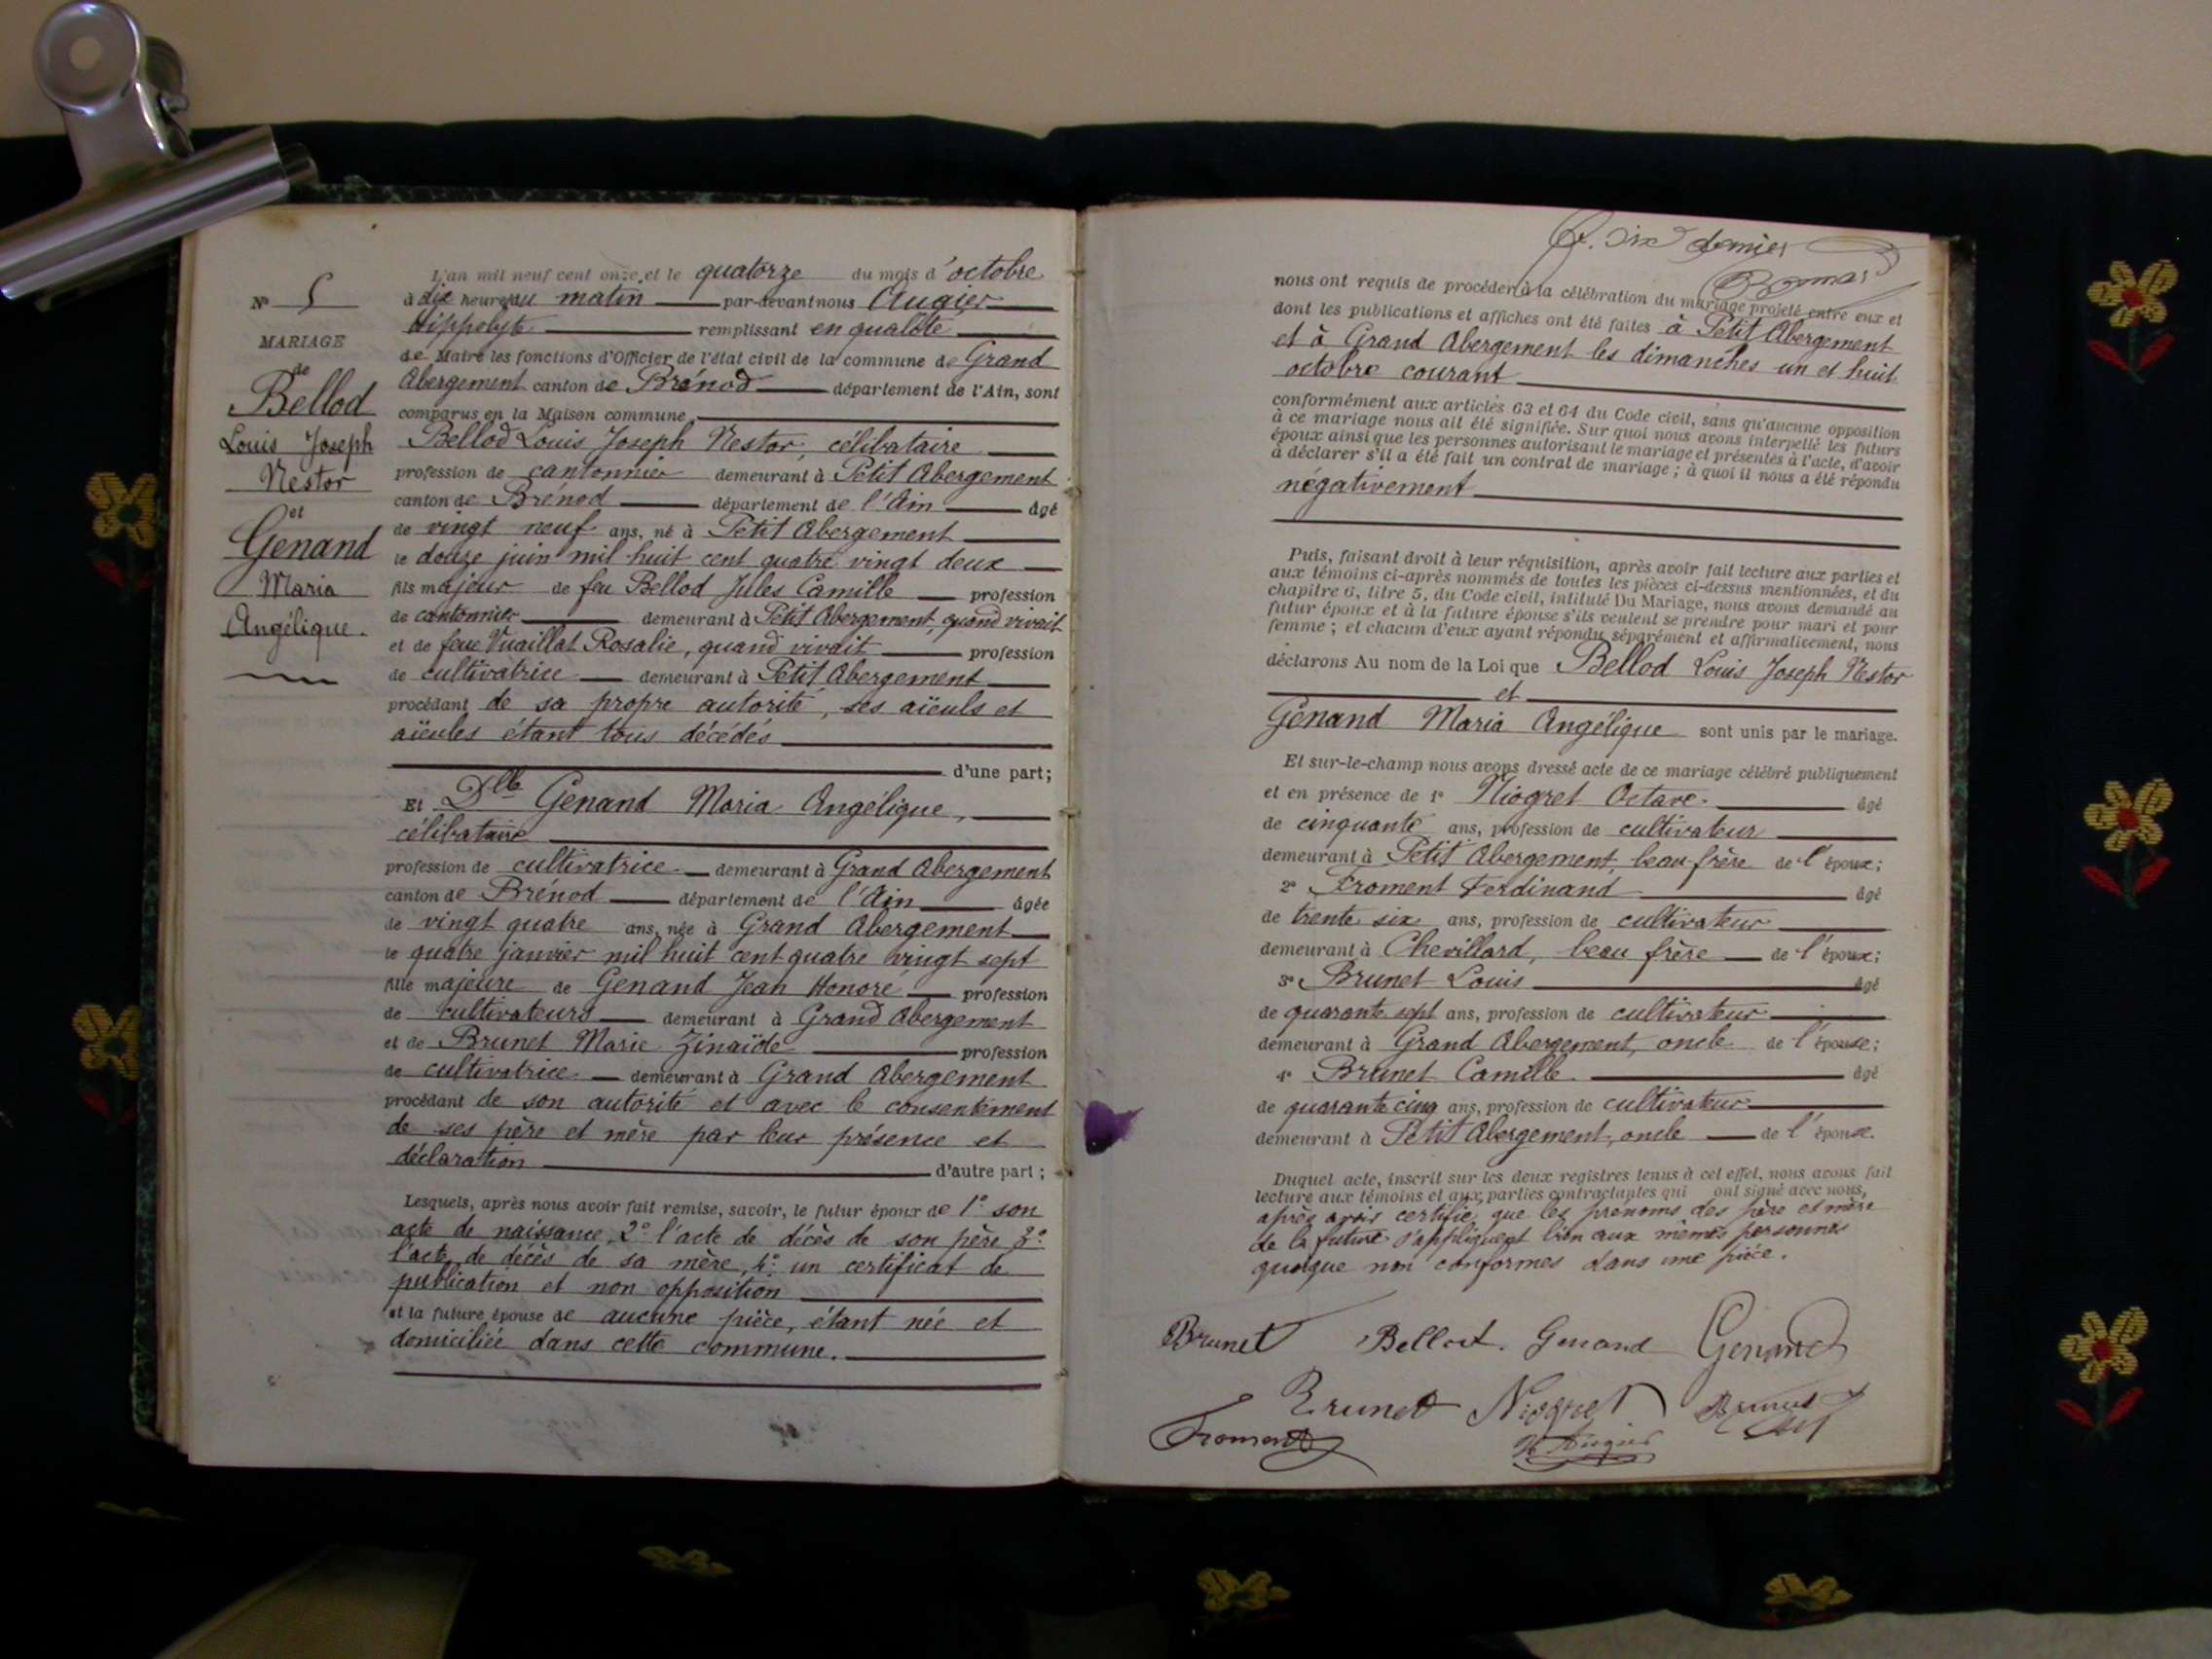 N° 5
MARIAGE
de
Bellod
Louis Joseph
Nestor
et
Genand
Maria
Angélique.
L'an mil neuf cent onze, et le quatorze du mois d'octobre
à dix heures du matin par-devant nous Augier
Hippolyte remplissant en qualité
de Maire les fonctions d'Officier de l'état civil de la commune de Grand
Abergement canton de Brénod département de l'Ain, sont
comparus en la Maison commune,
Bellod Louis Joseph Nestor, célibataire
profession de cantonnier demeurant à Petit Abergement
canton de Brenod département de l'Ain âgé
de vingt neuf ans, né à Petit Abergement
le douze juin mil huit cent quatre vingt deux
fils majeur de feu Bellod Jules Camille profession
de cantonnier demeurant à Petit Abergement, quand vivait
et de feue Vuaillat Rosalie, quand vivait profession
de cultivatrice demeurant à Petit Abergement
procédant de sa propre autorité, ses aïeuls et
aïeules étant tous décédés
d'une part;
Et Dlle Genand Maria Angélique,
célibataire
profession de cultivatrice demeurant à Grand Abergement
canton de Brénod département de l'Ain âgée
de vingt quatre ans, née à Grand Abergement
le quatre janvier mil huit cent quatre vingt sept
fille majeure de Genand Jean Honoré profession
de cultivateurs demeurant à Grand Abergement
et de Brunet Marie Zinaïde profession
de cultivatrice demeurant à Grand Abergement
procédant de son autorité et avec le consentement
de ses père et mère par leur présence et
déclaration d'autre part;
Lesquels, après nous avoir fait remise, savoir, le futur époux de 1° son
acte de naissance, 2° l'acte de décès de son père 3°
l'acte de décès de sa mère, 4° un certificat de
publication et non opposition
et la future épouse de aucune pièce, étant née et
domiciliée dans cette commune.
dernier
nous ont requis de procéder à la célébration du mariage projeté entre eux et
dont les publications et affiches ont été faites à Petit Abergement
et à Grand Abergement les dimanches un et huit
octobre courant
conformément aux articles 63 et 64 du Code civil, sans qu'aucune opposition
à ce mariage nous ait été signifiée. Sur quoi nous avons interpellé les futurs
époux ainsi que les personnes autorisant le mariage et présentes à l'acte, d'avoir
à déclarer s'il a été fait un contrat de mariage; à quoi il nous a été répondu
négativement
Puis, faisant droit à leur réquisition, après avoir fait lecture aux parties et
aux témoins ci-après nommés de toutes les pièces ci-dessus mentionnées, et du
chapitre 6, titre 5, du Code civil, intitulé Du Mariage, nous avons demandé au
futur époux et à la future épouse s'ils veulent se prendre pour mari et pour
femme; et chacun d'eux ayant répondu séparément et affirmativement, nous
déclarons Au nom de la Loi que Bellod Louis Joseph Nestor
et
Genand Maria Angélique sont unis par le mariage.
Et sur-le-champ nous avons dressé acte de ce mariage célébré publiquement
et en présence de 1° Niogret Octave. âgé
de cinquante ans, profession de cultivateur
demeurant à Petit Abergement, beau-frère de l'époux;
2° Froment Ferdinand âgé
de trente six ans, profession de cultivateur
demeurant à Chevillard, beau frère de l'époux;
3° Brunet Louis âgé
de quarante sept ans, profession de cultivateur
demeurant à Grand Abergement, oncle de l'épouse;
4° Brunet Camille. âgé
de quarante cinq ans, profession de cultivateur
demeurant à Petit Abergement, oncle de l'épouse.
Duquel acte, inscrit sur les deux registres tenus à cet effet, nous avons fait
lecture aux témoins et aux parties contractantes qui ont signé avec nous,
après avoir certifié que les prénoms des père et mère
de la future s'appliquent bien aux mêmes personnes
quoique non conformes dans une pièce.
Brunet Bellod. Genand Genand
Brunet Niogret Brunet
Froment H Augier